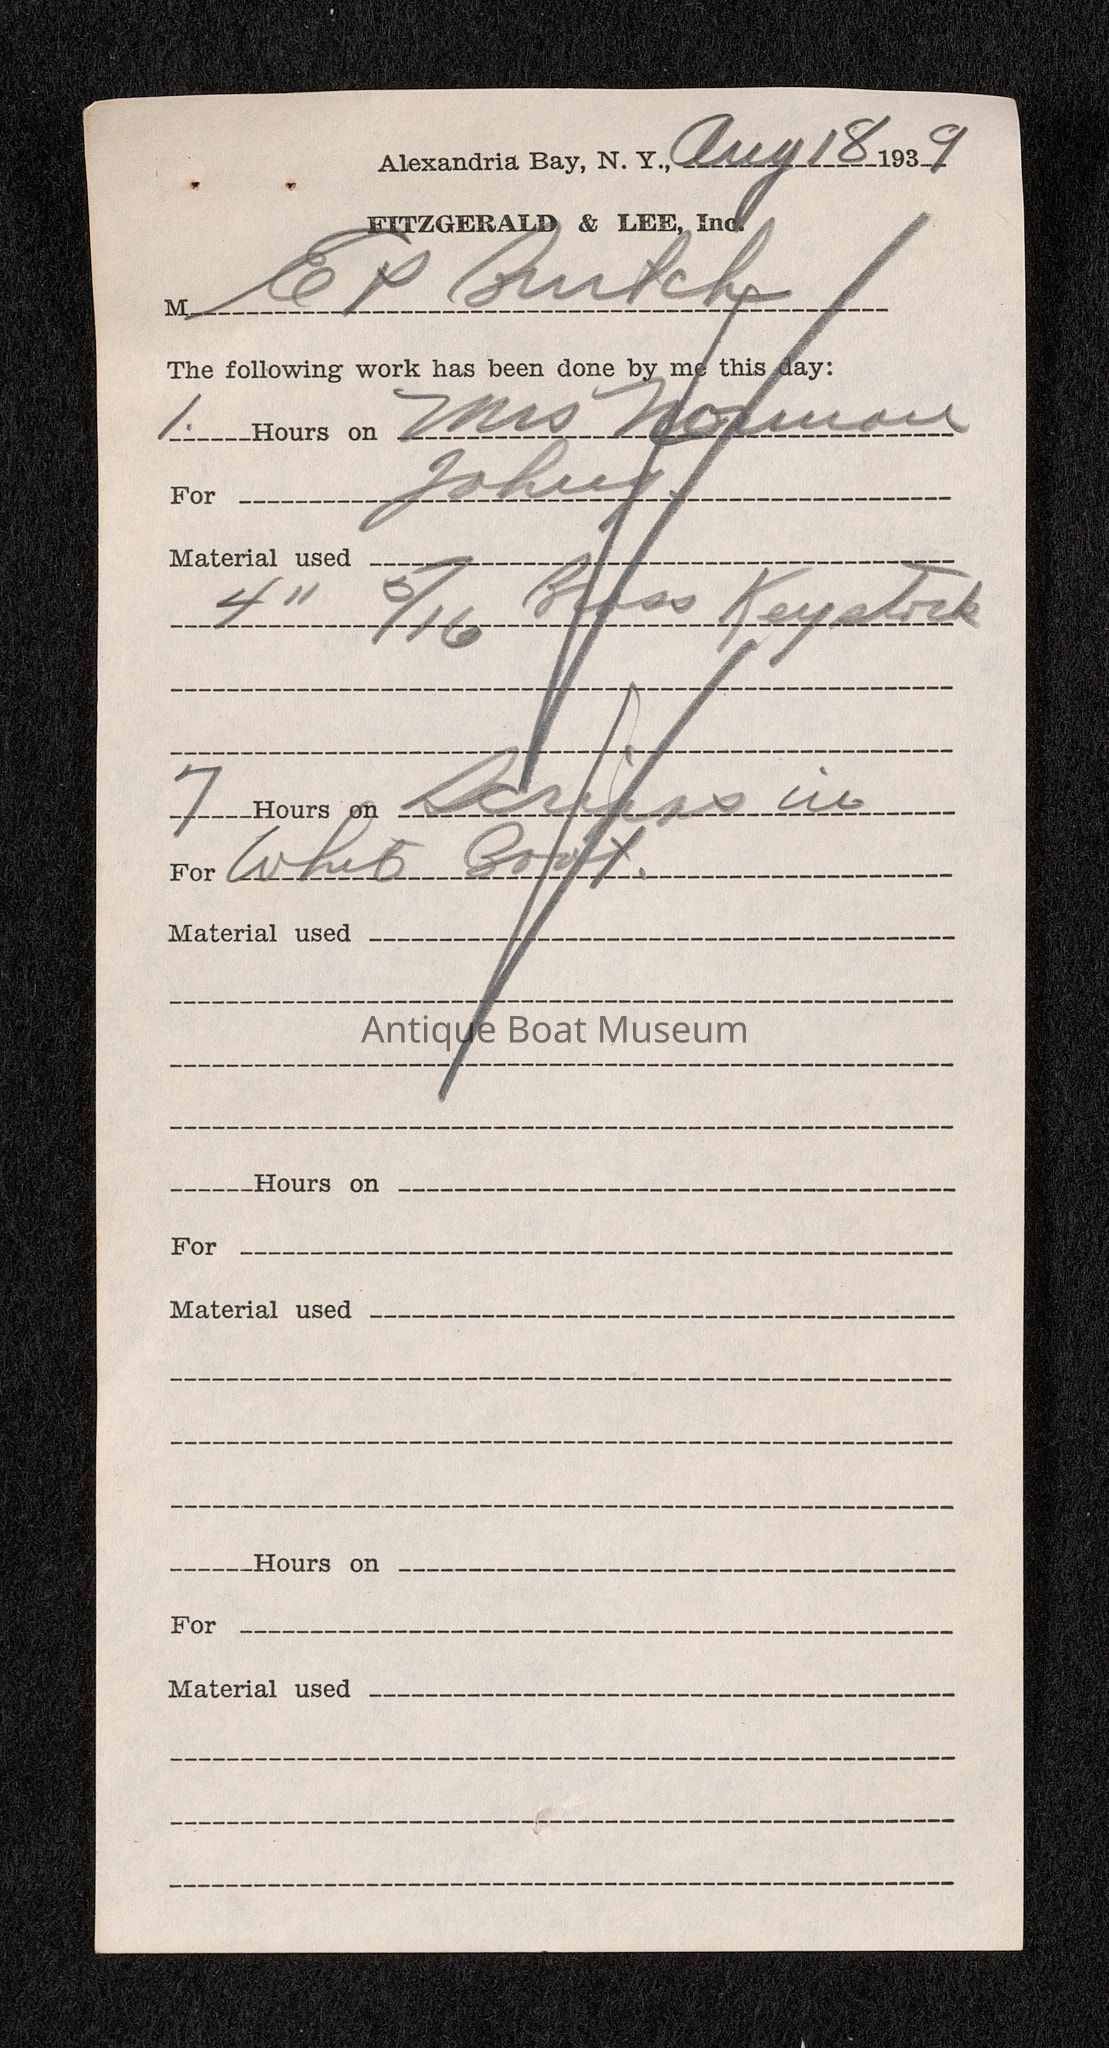 Alexandria Bay, N. Y., Aug 18 1939
FITZGERALD & LEE, Inc.
M E P Burtch
The following work has been done by me this day:
1. Hours on Mrs Norman
For Johny.
Material used
4" 5/16 Brass Keystock
7 Hours on Scripps in
For White Boat.
Material used
Antique Boat Museum
Hours on
For
Material used
Hours on
For
Material used